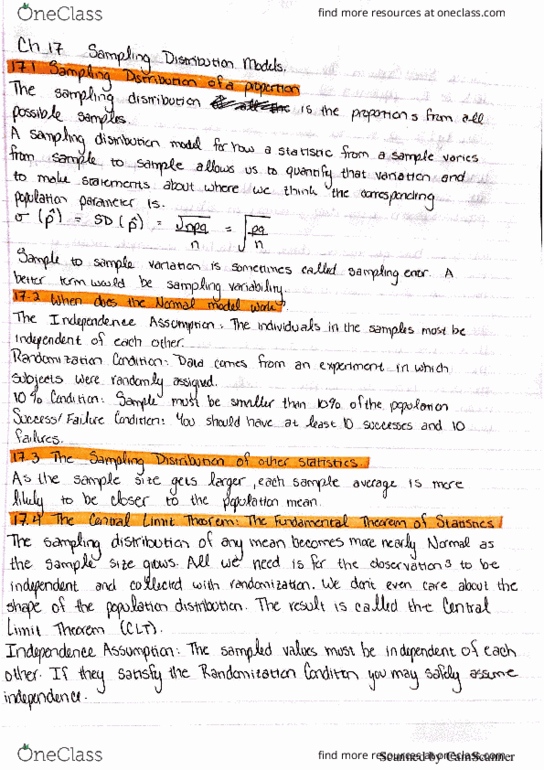 OneClass
find more resources at oneclass.com
Ch 17 Sampling Distribution Models.
17.1 Sampling Distribution of a proportion
The sampling distribution is the proportions from all
possible samples.
A sampling distribution model for how a statistic from a sample varies
from sample to sample allows us to quantify that variation and
to make statements about where we think the corresponding
population parameter is.
σ (p̂) = SD (p̂) = √npq / n = √(pq / n)
Sample to sample variation is sometimes called sampling error. A
better term would be sampling variability.
17.2 When does the Normal model work?
The Independence Assumption: The individuals in the samples must be
independent of each other.
Randomization Condition: Data comes from an experiment in which
subjects were randomly assigned.
10% Condition: Sample must be smaller than 10% of the population
Success/Failure Condition: You should have at least 10 successes and 10
failures.
17.3 The Sampling Distribution of other statistics.
As the sample size gets larger, each sample average is more
likely to be closer to the population mean.
17.4 The Central Limit Theorem: The Fundamental Theorem of Statistics
The sampling distribution of any mean becomes more nearly Normal as
the sample size grows. All we need is for the observations to be
independent and collected with randomization. We don't even care about the
shape of the population distribution. The result is called the Central
Limit Theorem (CLT).
Independence Assumption: The sampled values must be independent of each
other. If they satisfy the Randomization Condition you may safely assume
independence.
OneClass
find more resources at oneclass.com
Scanned by CamScanner